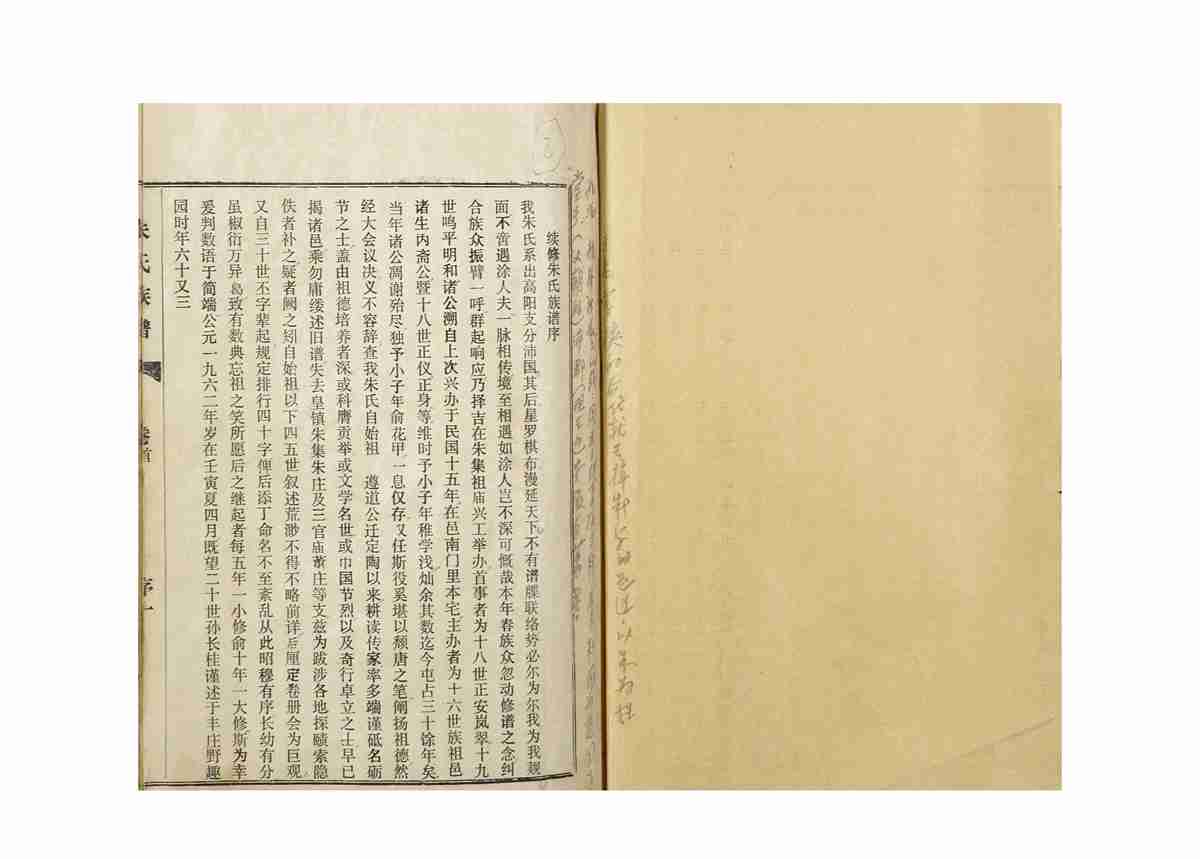 续修朱氏族谱序
我朱氏系出高阳支分沛国其后星罗棋布漫延天下不有谱牒联络势必尔为尔我为我觌
面不啻遇涂人夫一脉相传境至相遇如涂人岂不深可慨哉本年春族众忽动修谱之念纠
合族众振臂一呼群起响应乃择吉在朱集祖庙兴工举办首事者为十八世正安岚翠十九
世鸣平明和诸公溯自上次兴办于民国十五年在邑南门里本宅主办者为十六世族祖邑
诸生内斋公暨十八世正仪正身等维时予小子年稚学浅灿余其数迄今屯占三十馀年矣
当年诸公凋谢殆尽独予小子年俞花甲一息仅存又任斯役奚堪以颓唐之笔阐扬祖德然
经大会议决义不容辞查我朱氏自始祖 遵道公迁定陶以来耕读传家率多端谨砥名砺
节之士盖由祖德培养者深或科膺贡举或文学名世或巾国节烈以及奇行卓立之士早已
揭诸邑乘勿庸缕述旧谱失去皇镇朱集朱庄及三官庙董庄等支兹为跋涉各地探赜索隐
佚者补之疑者阙之矧自始祖以下四五世叙述荒渺不得不略前详后厘定卷册会为巨观
又自三十世丕字辈起规定排行四十字俾后添丁命名不至紊乱从此昭穆有序长幼有分
虽椒衍万异曷致有数典忘祖之笑所愿后之继起者每五年一小修俞十年一大修斯为幸
爰判数语于简端公元一九六二年岁在壬寅夏四月既望二十世孙长桂谨述于丰庄野趣
园时年六十又三
朱氏族谱 卷首 序一